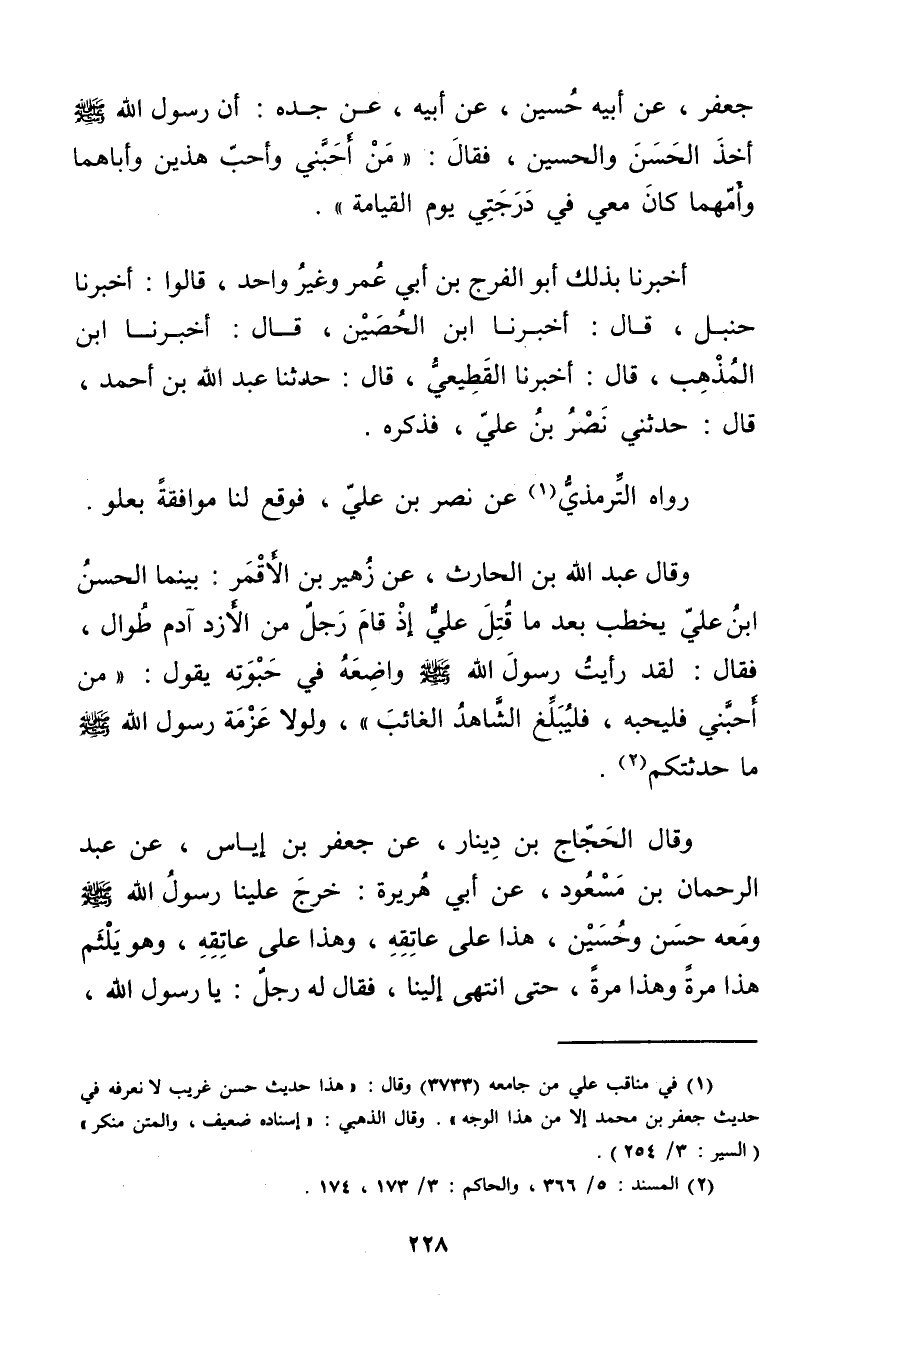 جعفر ، عن أبيه حُسين ، عن أبيه ، عـن جـده : أن رسول الله ﷺ
أخذَ الحَسَنَ والحسين ، فقالَ : « مَنْ أَحَبَّني وأحبّ هذين وأباهما
وأُمّهما كانَ معي في دَرَجَتِي يوم القيامة » .
أخبرنا بذلك أبو الفرج بن أبي عُمر وغيرُ واحد ، قالوا : أخبرنا
حنبـل ، قـال : أخبـرنـا ابن الحُصَيْن ، قـال : أخبـرنـا ابن
المُذْهِب ، قال : أخبرنا القَطِيعيُّ ، قال : حدثنا عبد الله بن أحمد ،
قال : حدثني نَصْرُ بنُ عليّ ، فذكره .
رواه التِّرمذيُّ(١) عن نصر بن عليّ ، فوقع لنا موافقةً بعلو .
وقال عبد الله بن الحارث ، عن زُهير بن الأَقْمَر : بينما الحسنُ
ابنُ عليّ يخطب بعد ما قُتِلَ عليٌّ إذْ قامَ رَجلٌ من الأَزد آدم طُوال ،
فقال : لقد رأيتُ رسولَ الله ﷺ واضِعَهُ في حَبْوَتِه يقول : « من
أَحبَّني فليحبه ، فليُبَلِّغ الشَّاهدُ الغائبَ » ، ولولا عَزْمَة رسول الله ﷺ
ما حدثتكم(٢) .
وقال الحَجّاج بن دِينار ، عن جعفر بن إيـاس ، عن عبد
الرحمان بن مَسْعُود ، عن أبي هُريرة : خرجَ علينا رسولُ الله ﷺ
ومَعه حسَن وحُسَيْن ، هذا على عاتِقِهِ ، وهذا على عاتِقِهِ ، وهو يَلْثَم
هذا مرةً وهذا مرةً ، حتى انتهى إلينا ، فقال له رجلٌ : يا رسول الله ،
(١) في مناقب علي من جامعه (٣٧٣٣) وقال : « هذا حديث حسن غريب لا نعرفه في
حديث جعفر بن محمد إلا من هذا الوجه » . وقال الذهبي : « إسناده ضعيف ، والمتن منكر »
( السير : ٣/ ٢٥٤ ) .
(٢) المسند : ٥/ ٣٦٦ ، والحاكم : ٣/ ١٧٣ ، ١٧٤ .
٢٢٨